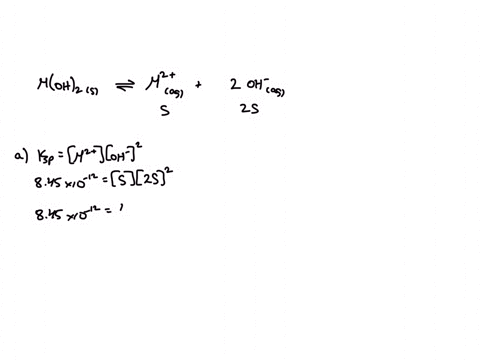 M(OH)₂(s) ⇌ M²⁺(aq) + 2 OH⁻(aq)
S 2S
a) Ksp = [M²⁺][OH⁻]²
8.45 ×10⁻¹² = [S][2S]²
8.45 ×10⁻¹² =